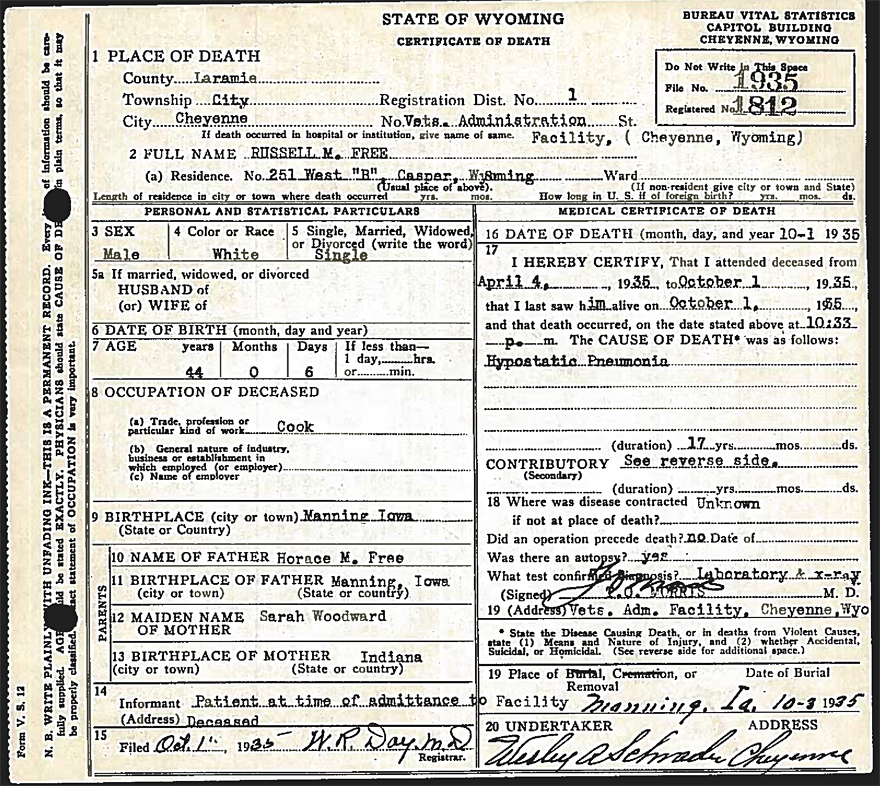 STATE OF WYOMING
CERTIFICATE OF DEATH
BUREAU VITAL STATISTICS
CAPITOL BUILDING
CHEYENNE, WYOMING
Do Not Write in This Space
File No. 1935
Registered No. 1812
1 PLACE OF DEATH
County Laramie
Township City Registration Dist. No. 1
City Cheyenne No. Vets. Administration St.
If death occurred in hospital or institution, give name of same. Facility, ( Cheyenne, Wyoming)
2 FULL NAME RUSSELL M. FREE
(a) Residence. No. 251 West "B", Casper, Wyoming Ward
(Usual place of above). (If non-resident give city or town and State)
Length of residence in city or town where death occurred yrs. mos. How long in U. S. if of foreign birth? yrs. mos. ds.
PERSONAL AND STATISTICAL PARTICULARS
3 SEX
Male
4 Color or Race
White
5 Single, Married, Widowed,
or Divorced (write the word)
Single
5a If married, widowed, or divorced
HUSBAND of
(or) WIFE of
6 DATE OF BIRTH (month, day and year)
7 AGE years Months Days If less than—
1 day, hrs.
44 0 6 or min.
8 OCCUPATION OF DECEASED
(a) Trade, profession or
particular kind of work Cook
(b) General nature of industry,
business or establishment in
which employed (or employer)
(c) Name of employer
9 BIRTHPLACE (city or town) Manning Iowa
(State or Country)
PARENTS
10 NAME OF FATHER Horace M. Free
11 BIRTHPLACE OF FATHER Manning, Iowa
(city or town) (State or country)
12 MAIDEN NAME Sarah Woodward
OF MOTHER
13 BIRTHPLACE OF MOTHER Indiana
(city or town) (State or country)
14
Informant Patient at time of admittance to Facility
(Address) Deceased
15
Filed Oct. 1", 1935 W. R. Day, M.D
Registrar.
MEDICAL CERTIFICATE OF DEATH
16 DATE OF DEATH (month, day, and year 10-1 1935
17
I HEREBY CERTIFY, That I attended deceased from
April 4, , 1935, to October 1 , 1935,
that I last saw him alive on October 1, , 1935,
and that death occurred, on the date stated above at 10:33
p. m. The CAUSE OF DEATH* was as follows:
Hypostatic Pneumonia
(duration) 17 yrs. mos. ds.
CONTRIBUTORY See reverse side.
(Secondary)
(duration) yrs. mos. ds.
18 Where was disease contracted Unknown
if not at place of death?
Did an operation precede death? no Date of
Was there an autopsy? yes
What test confirmed diagnosis? Laboratory & x-ray
(Signed) MORRIS M. D.
19 (Address) Vets. Adm. Facility, Cheyenne, Wyo
* State the Disease Causing Death, or in deaths from Violent Causes,
state (1) Means and Nature of Injury, and (2) whether Accidental,
Suicidal, or Homicidal. (See reverse side for additional space.)
19 Place of Burial, Cremation, or Date of Burial
Removal
Manning, Ia. 10-3 1935
20 UNDERTAKER ADDRESS
Wesley A Schrader Cheyenne
Form V. S. 12
N. B. WRITE PLAINLY WITH UNFADING INK—THIS IS A PERMANENT RECORD. Every of information should be care-
fully supplied. AGE should be stated EXACTLY. PHYSICIANS should state CAUSE OF DEATH in plain terms, so that it may
be properly classified. statement of OCCUPATION is very important.